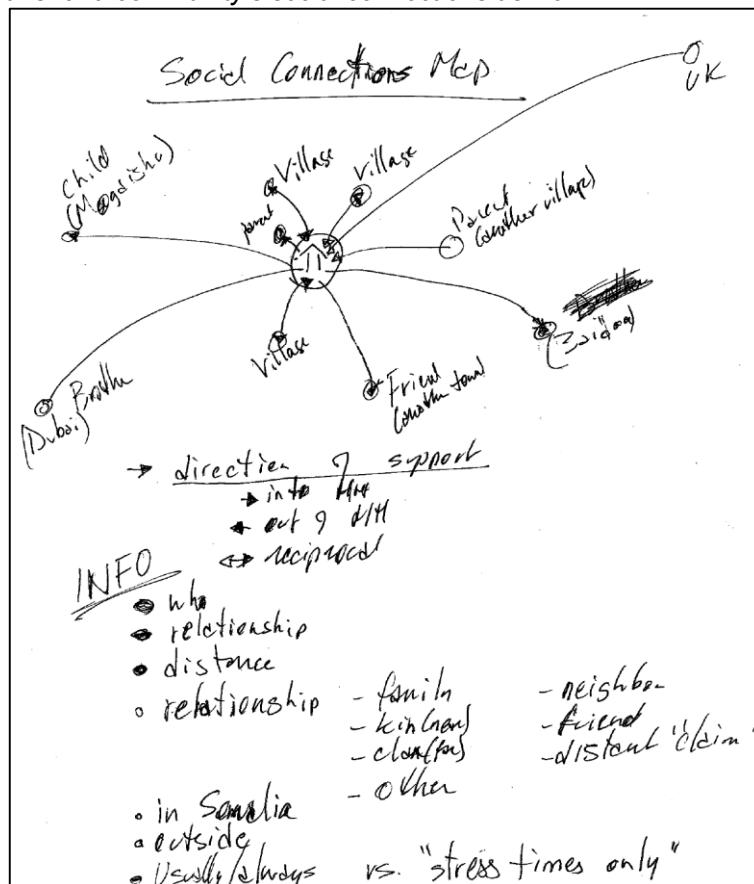 Social Connections Map
UK
Child
(Mogadishu)
Village
Village
parent
Parent
(another village)
(Baidoa)
Village
Friend
(another town)
Brother
(Dubai)
→ direction of support
→ into HH
← out of HH
↔ reciprocal
INFO
• who
• relationship
• distance
○ relationship - family - neighbor
- kin (near) - friend
- clan (far) - distant "claim"
- other
• in Somalia
• outside
• Usually/always vs. "stress times only"